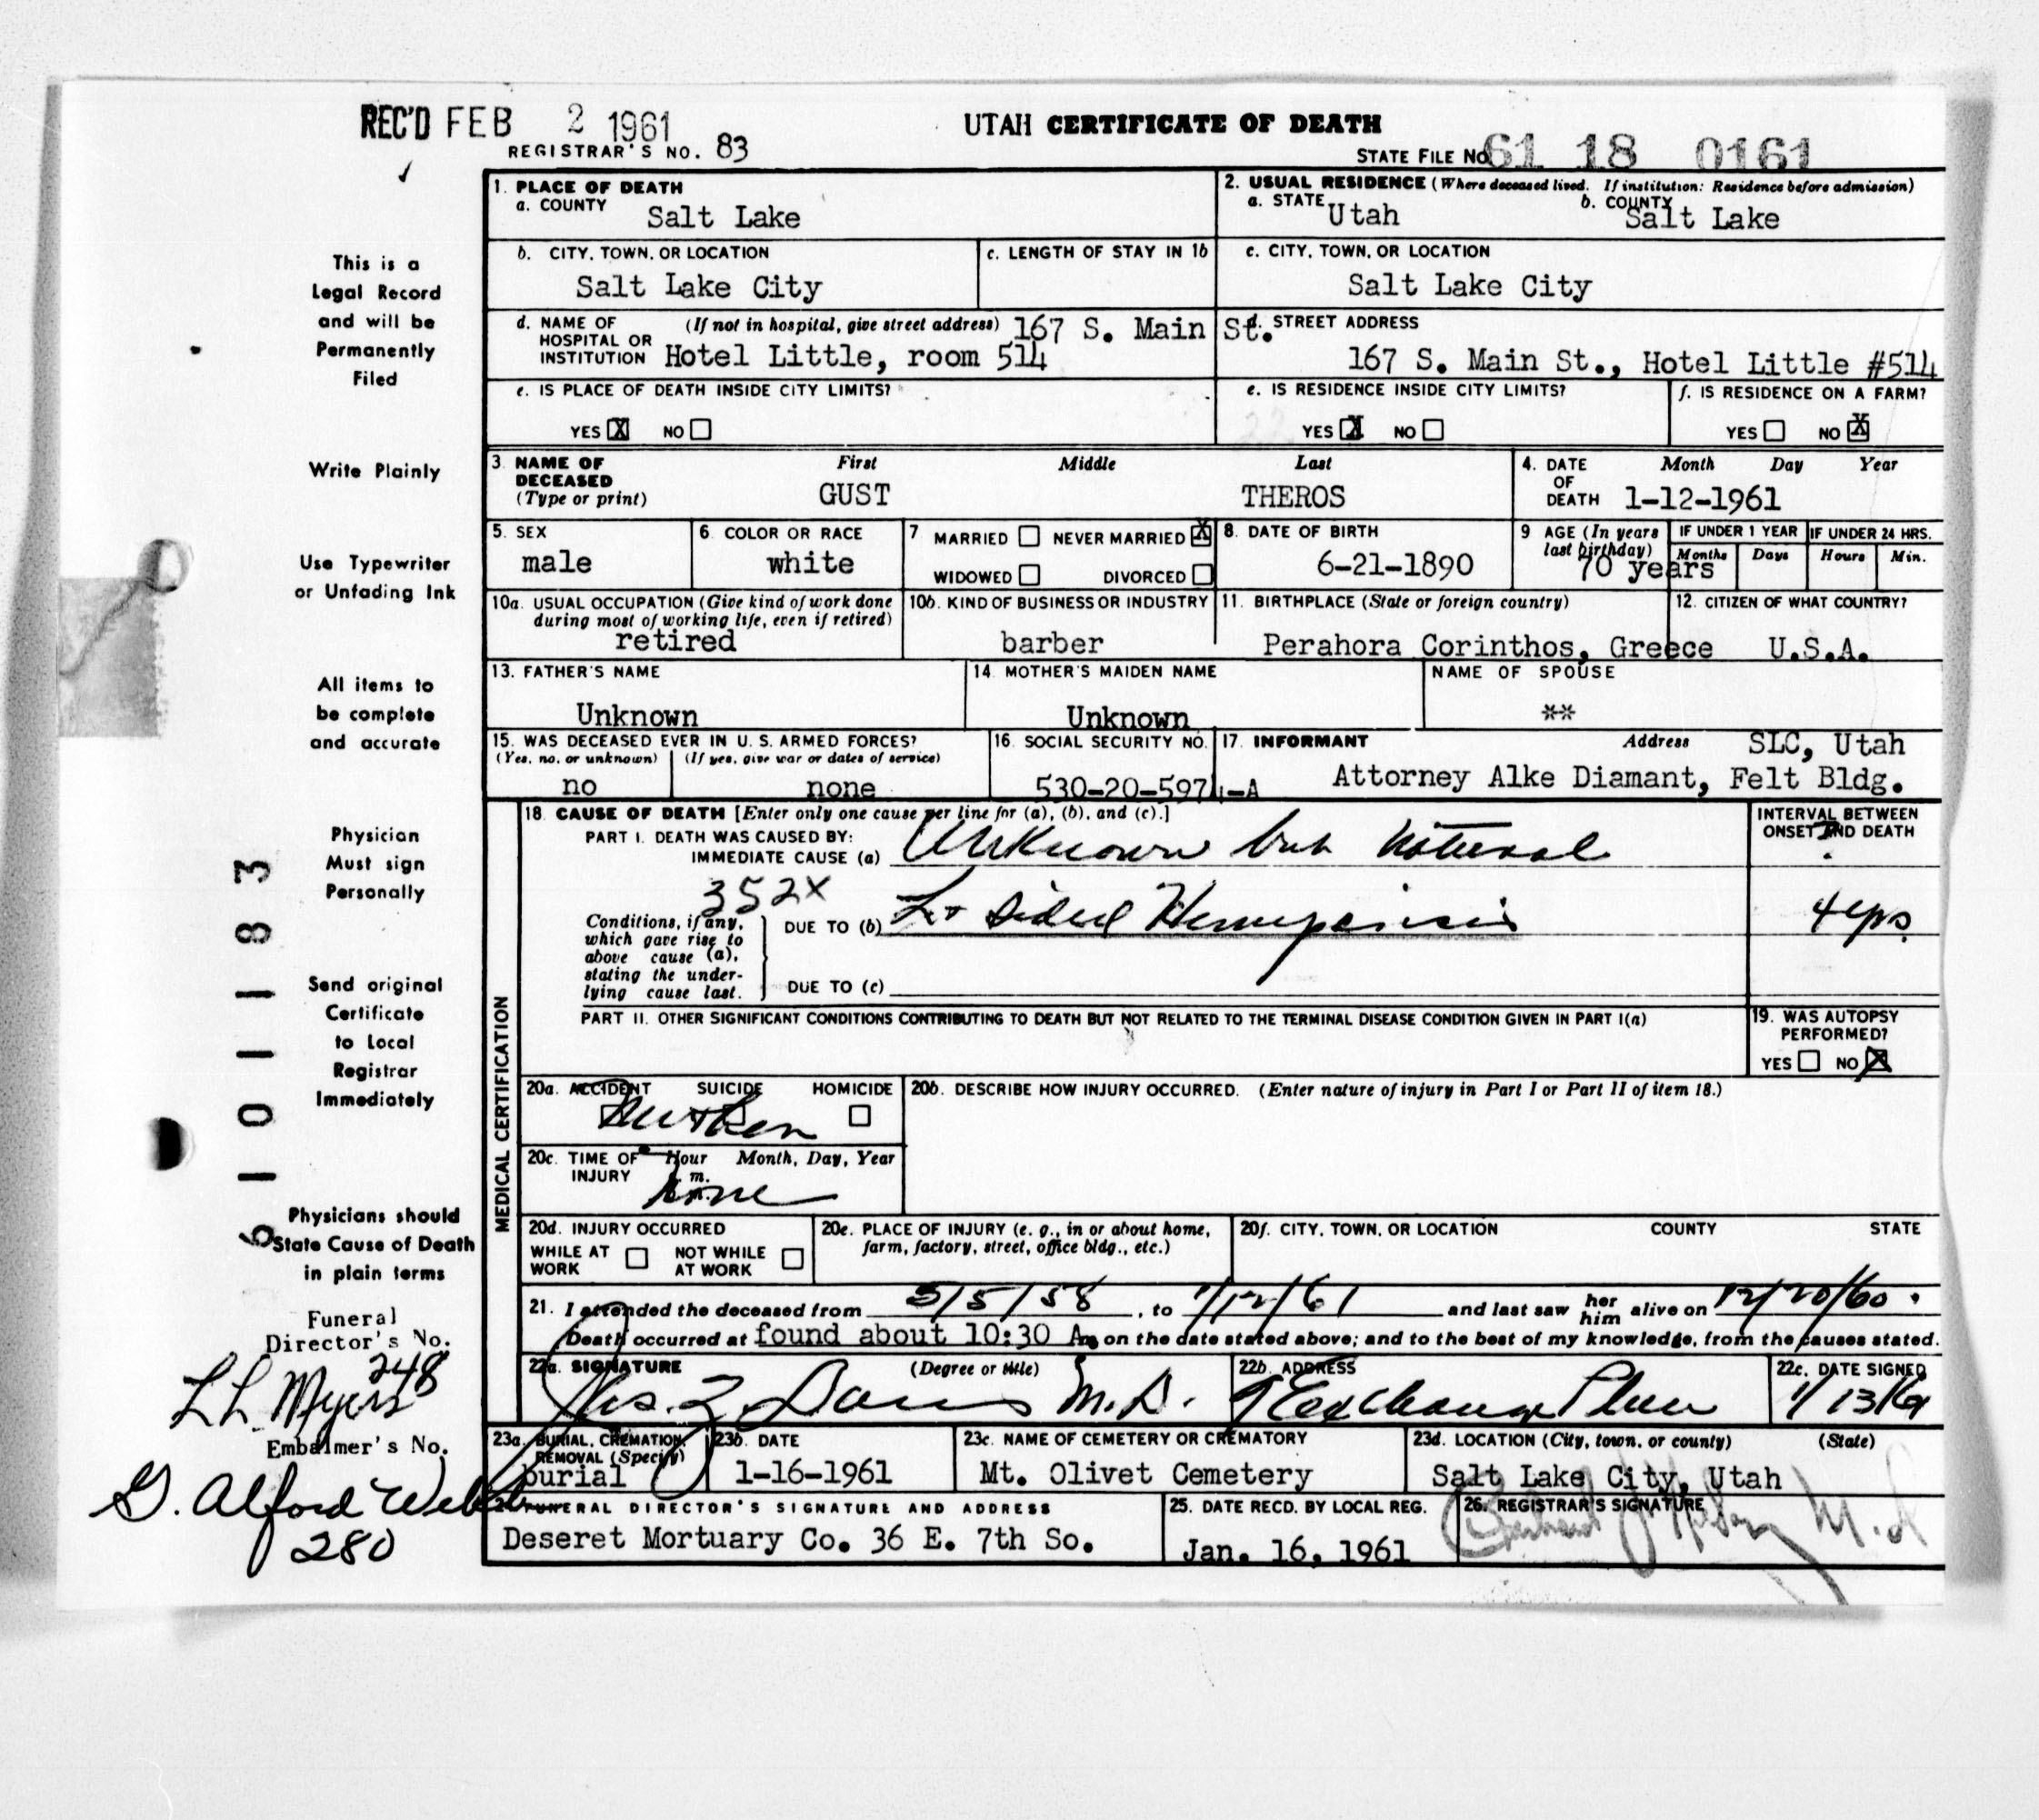 REC'D FEB 2 1961
UTAH CERTIFICATE OF DEATH
REGISTRAR'S NO. 83
STATE FILE NO. 61 18 0161
1. PLACE OF DEATH
a. COUNTY Salt Lake
2. USUAL RESIDENCE (Where deceased lived. If institution: Residence before admission)
a. STATE Utah b. COUNTY Salt Lake
b. CITY, TOWN, OR LOCATION
Salt Lake City
c. LENGTH OF STAY IN 1b
c. CITY, TOWN, OR LOCATION
Salt Lake City
d. NAME OF HOSPITAL OR INSTITUTION (If not in hospital, give street address) 167 S. Main St.
Hotel Little, room 514
d. STREET ADDRESS
167 S. Main St., Hotel Little #514
e. IS PLACE OF DEATH INSIDE CITY LIMITS?
YES X NO
e. IS RESIDENCE INSIDE CITY LIMITS?
YES X NO
f. IS RESIDENCE ON A FARM?
YES NO X
3. NAME OF DECEASED (Type or print)
First Middle Last
GUST THEROS
4. DATE OF DEATH Month Day Year
1-12-1961
5. SEX
male
6. COLOR OR RACE
white
7 MARRIED NEVER MARRIED X
WIDOWED DIVORCED
8. DATE OF BIRTH
6-21-1890
9 AGE (In years last birthday)
70 years
IF UNDER 1 YEAR IF UNDER 24 HRS.
Months Days Hours Min.
10a. USUAL OCCUPATION (Give kind of work done during most of working life, even if retired)
retired
10b. KIND OF BUSINESS OR INDUSTRY
barber
11. BIRTHPLACE (State or foreign country)
Perahora Corinthos, Greece
12. CITIZEN OF WHAT COUNTRY?
U.S.A.
13. FATHER'S NAME
Unknown
14. MOTHER'S MAIDEN NAME
Unknown
NAME OF SPOUSE
**
15. WAS DECEASED EVER IN U. S. ARMED FORCES?
(Yes, no, or unknown) (If yes, give war or dates of service)
no none
16. SOCIAL SECURITY NO.
530-20-5974-A
17. INFORMANT Address SLC, Utah
Attorney Alke Diamant, Felt Bldg.
MEDICAL CERTIFICATION
18. CAUSE OF DEATH [Enter only one cause per line for (a), (b), and (c).]
PART I. DEATH WAS CAUSED BY:
IMMEDIATE CAUSE (a) Unknown but natural
INTERVAL BETWEEN ONSET AND DEATH
?
352X
Conditions, if any, which gave rise to above cause (a), stating the underlying cause last.
DUE TO (b) Lt sided Hemiparisis
4 yrs.
DUE TO (c)
PART II. OTHER SIGNIFICANT CONDITIONS CONTRIBUTING TO DEATH BUT NOT RELATED TO THE TERMINAL DISEASE CONDITION GIVEN IN PART I(a)
19. WAS AUTOPSY PERFORMED?
YES NO X
20a. ACCIDENT SUICIDE HOMICIDE
neither
20b. DESCRIBE HOW INJURY OCCURRED. (Enter nature of injury in Part I or Part II of item 18.)
20c. TIME OF INJURY Hour Month, Day, Year
m.
none
20d. INJURY OCCURRED
WHILE AT WORK NOT WHILE AT WORK
20e. PLACE OF INJURY (e. g., in or about home, farm, factory, street, office bldg., etc.)
20f. CITY, TOWN, OR LOCATION COUNTY STATE
21. I attended the deceased from 5/5/58, to 1/12/61 and last saw her him alive on 12/20/60.
Death occurred at found about 10:30 A m on the date stated above; and to the best of my knowledge, from the causes stated.
22a. SIGNATURE (Degree or title)
Jas. Z. Davis M.D.
22b. ADDRESS
9 Exchange Place
22c. DATE SIGNED
1/13/61
23a. BURIAL, CREMATION, REMOVAL (Specify)
burial
23b. DATE
1-16-1961
23c. NAME OF CEMETERY OR CREMATORY
Mt. Olivet Cemetery
23d. LOCATION (City, town, or county) (State)
Salt Lake City, Utah
FUNERAL DIRECTOR'S SIGNATURE AND ADDRESS
Deseret Mortuary Co. 36 E. 7th So.
25. DATE RECD. BY LOCAL REG.
Jan. 16, 1961
26. REGISTRAR'S SIGNATURE
M.D
This is a
Legal Record
and will be
Permanently
Filed
Write Plainly
Use Typewriter
or Unfading Ink
All items to
be complete
and accurate
Physician
Must sign
Personally
Send original
Certificate
to Local
Registrar
Immediately
Physicians should
State Cause of Death
in plain terms
Funeral
Director's No.
248
L L Myers
Embalmer's No.
G. Alford Webb
280
6101183